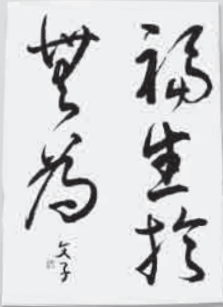 福生於
無為
文子